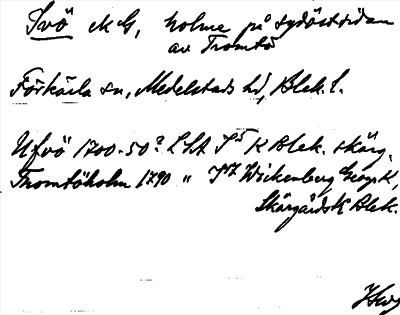 Svö ek G, holme på sydöstsidan
av Tromtö
Förkärla sn, Medelstads hd, Blek. l.
Ufvö 1700-50? LSA S5 K Blek. skärg.
Tromtöholm 1790 " S7 Wickenberg Geogr K,
Skärgårds K Blek.